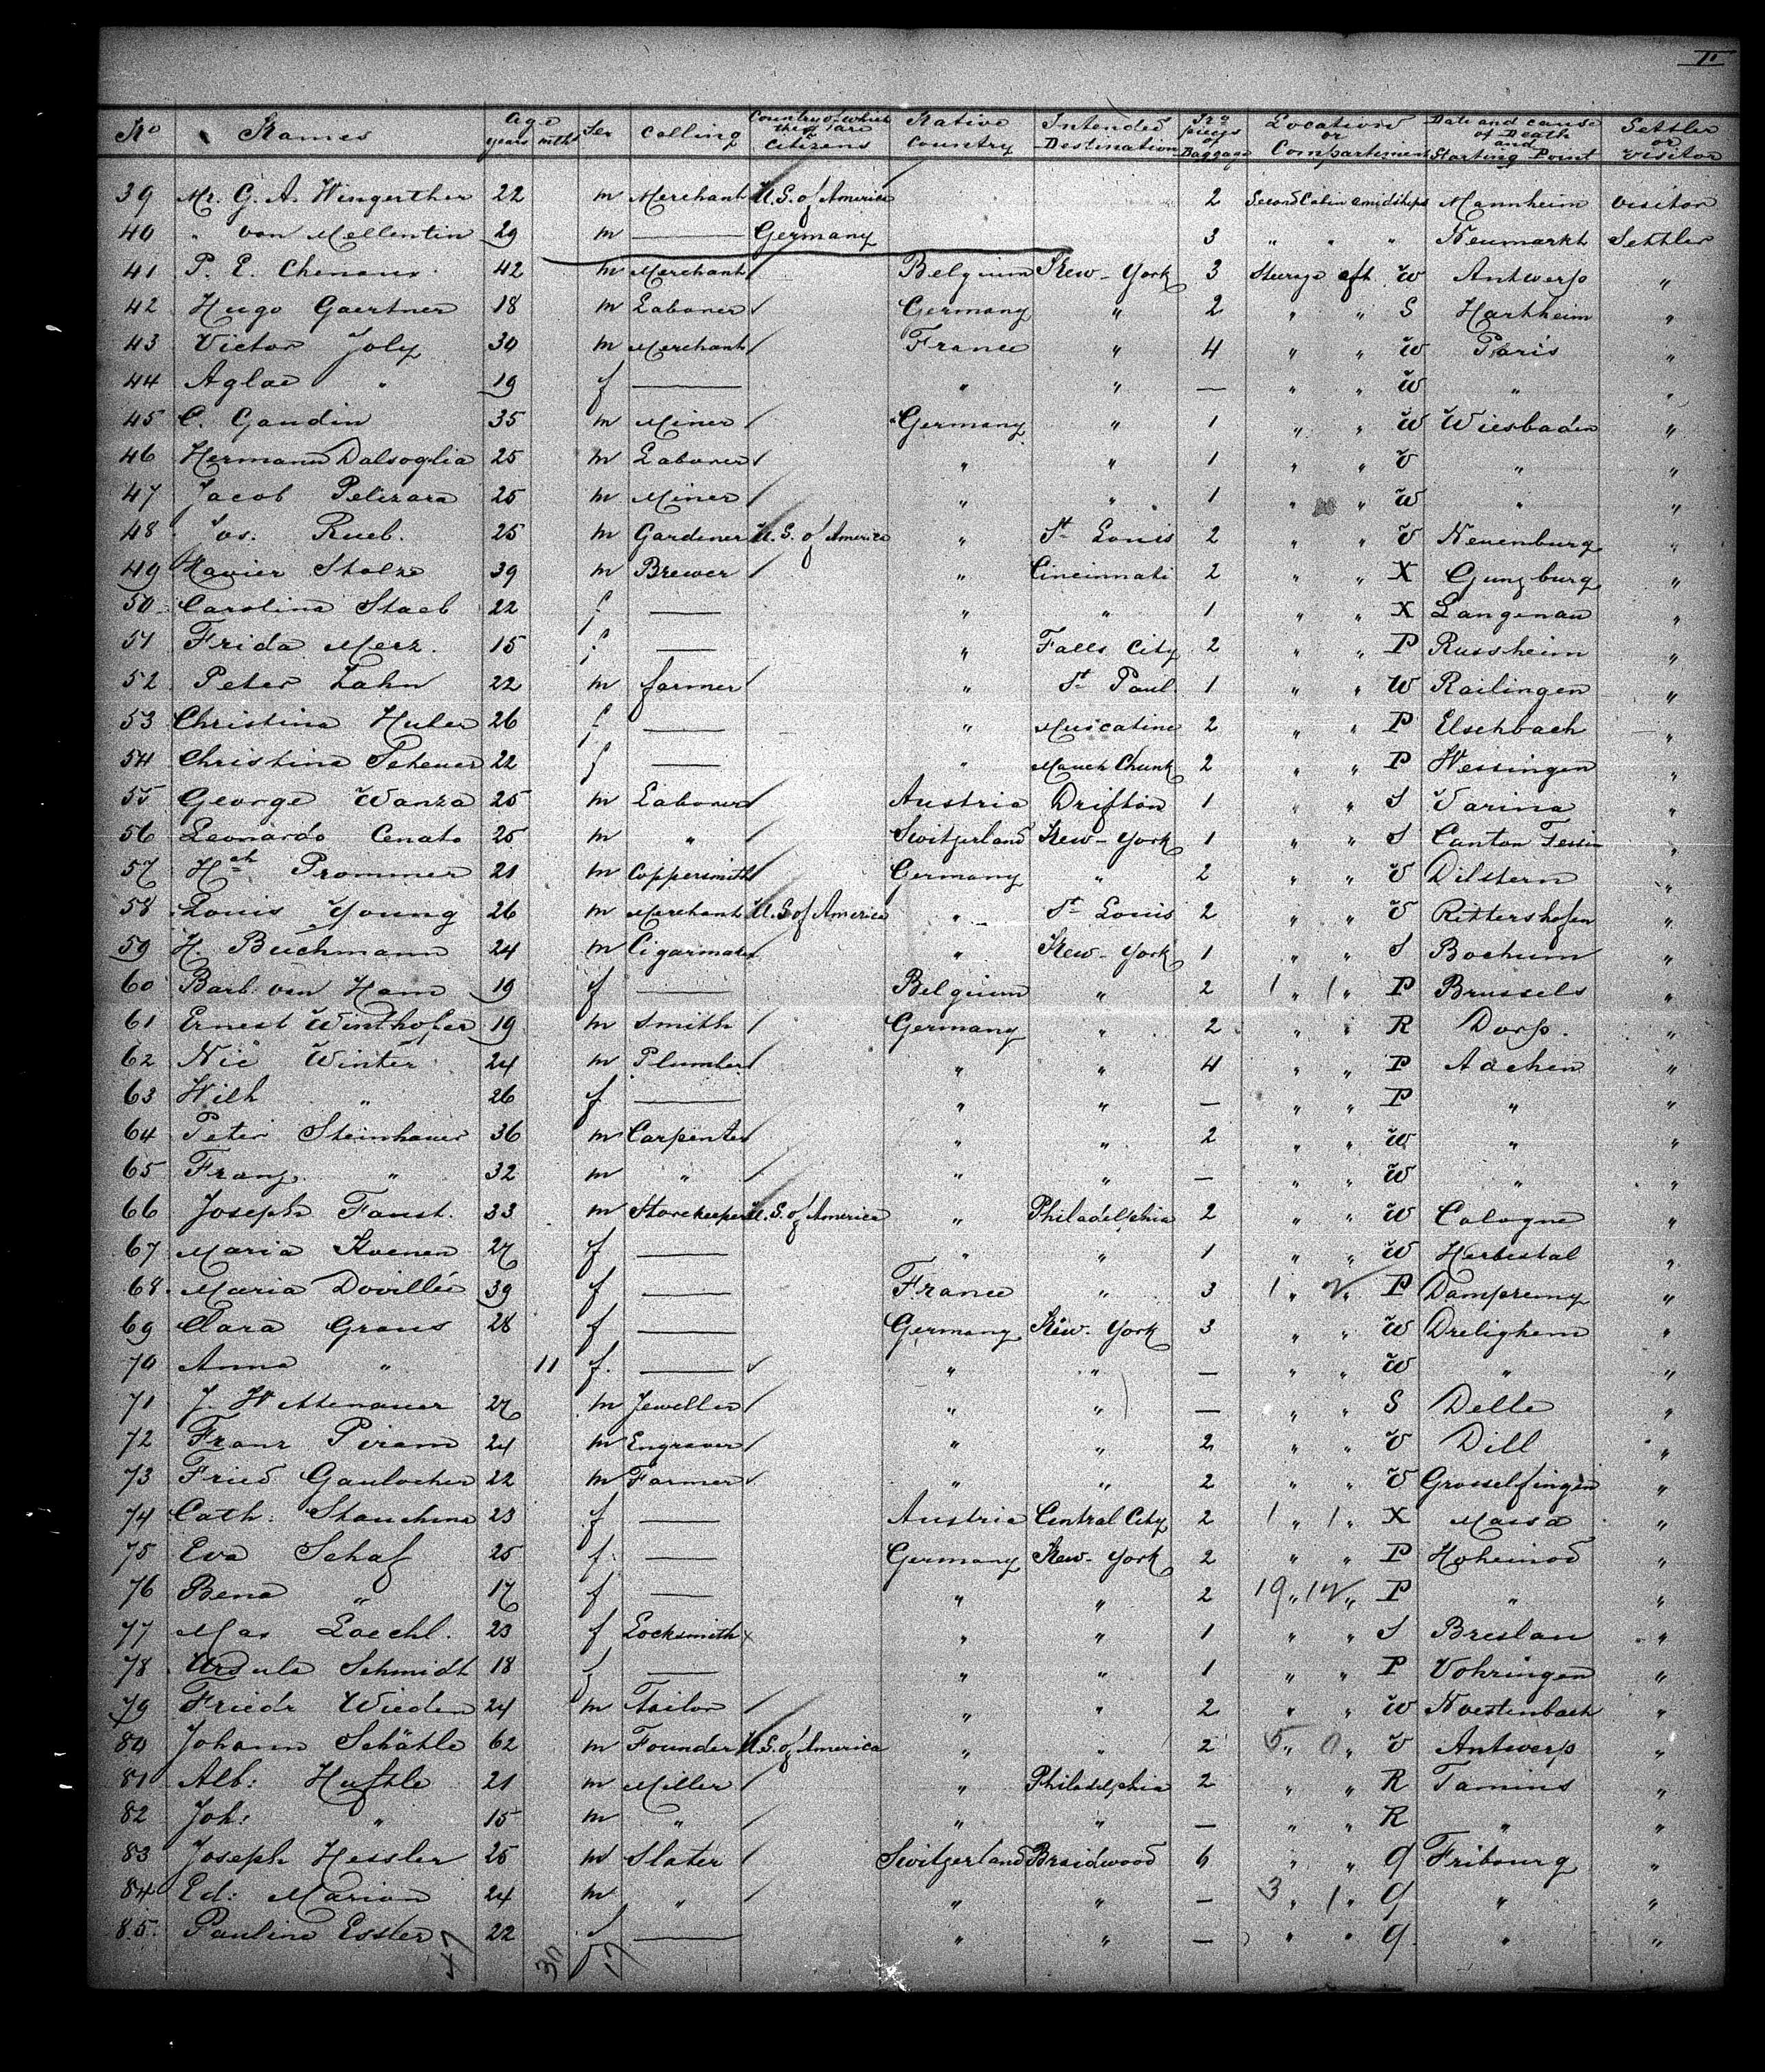 No Names Age years mths Sex Calling Country of which they are Citizens Native Country Intended Destination No pieces of Baggage Location or Compartment Date and cause of Death and Starting Point Settler or Visitor
39 Mr. G. A. Wingerther 22 m Merchant U.S. of America 2 Second Cabin amidships Mannheim Visitor
40 " von Mellentin 29 m — Germany 3 " " " Neumarkt Settler
41 P. E. Chenaux 42 m Merchant / Belgium New-York 3 Steerage aft W Antwerp "
42 Hugo Gaertner 18 m Laborer / Germany " 2 " " S Harthheim "
43 Victor Joly 30 m Merchant / France " 4 " " W Paris "
44 Aglae " 19 f — " " — " " W " "
45 C. Gaudin 35 m Miner / Germany " 1 " " W Wiesbaden "
46 Hermann Dalsoglia 25 m Laborer / " " 1 " " V " "
47 Jacob Pelizara 25 m Miner / " " 1 " " W " "
48 Jos. Rueb. 25 m Gardener U.S. of America " St Louis 2 " " V Neuemburg "
49 Xavier Stolze 39 m Brewer / " Cincinnati 2 " " X Gunzburg "
50 Carolina Staeb 22 f — " " 1 " " X Langenau "
51 Frida Merz. 15 f — " Falls City 2 " " P Russheim "
52 Peter Zahn 22 m farmer / " St Paul 1 " " W Railingen "
53 Christina Huber 26 f — " Muscatine 2 " " P Elschbach "
54 Christina Scheuer 22 f — " Mauch Chunk 2 " " P Wessingen "
55 George Wanza 25 m Laborer / Austria Drifton 1 " " S Varina "
56 Leonardo Cenato 25 m " / Switzerland New-York 1 " " S Canton Tessin "
57 Hch Prommer 21 m Coppersmith / Germany " 2 " " V Dilstern "
58 Louis Young 26 m Merchant U.S. of America " St Louis 2 " " V Rittershofen "
59 H. Buchmann 24 m Cigarmaker / " New-York 1 " " S Bochum "
60 Barb. van Ham 19 f — Belgium " 2 1 " 1 " P Brussels "
61 Ernest Winthofer 19 m Smith / Germany " 2 " " R Dorp. "
62 Nic Winter 24 m Plumber / " " 4 " " P Aachen "
63 Wilh " 26 f — " " — " " P " "
64 Peter Steinhauer 36 m Carpenter / " " 2 " " W " "
65 Franz " 32 m " / " " — " " W " "
66 Joseph Faust. 33 m Storekeeper U.S. of America " Philadelphia 2 " " W Cologne "
67 Maria Koenen 27 f — " " 1 " " W Herbestal "
68 Maria Dovillée 39 f — France " 3 1 " 2 " P Dampremy "
69 Clara Graus 28 f — Germany New-York 3 " " W Drelighem "
70 Anna " 11 f. — " " — " " W " "
71 J. Wettenauer 27 m Jeweller / " " — " " S Delle "
72 Franz Piram 24 m Engraver / " " 2 " " V Dill "
73 Fried Gaulocher 22 m Farmer / " " 2 " " V Grosselfingen "
74 Cath: Stauchina 23 f — Austria Central City 2 1 " 1 " X Massa "
75 Eva Schaf 25 f. — Germany New-York 2 " " P Hoheinod "
76 Bena " 17 f — " " 2 19 " 12 " P " "
77 Max Loechl. 23 f Locksmith x " " 1 " " S Breslau "
78 Ursula Schmidt 18 f — " " 1 " " P Vohringen "
79 Friedr Wieden 24 m Tailor / " " 2 " " W Noestenbach "
80 Johann Schähle 62 m Founder U.S. of America " " 2 5 " 0 " V Antwerp "
81 Alb: Huthle 21 m Miller / " Philadelphia 2 " " R Tamins "
82 Joh: " 15 m " / " " — " " R " "
83 Joseph Hessler 25 m Slater / Switzerland Braidwood 6 " " Q Fribourg "
84 Ed: Marion 24 m " / " " — 3 " 1 " Q " "
85. Pauline Essler 22 f — " " — " " Q. " "
47 30 17